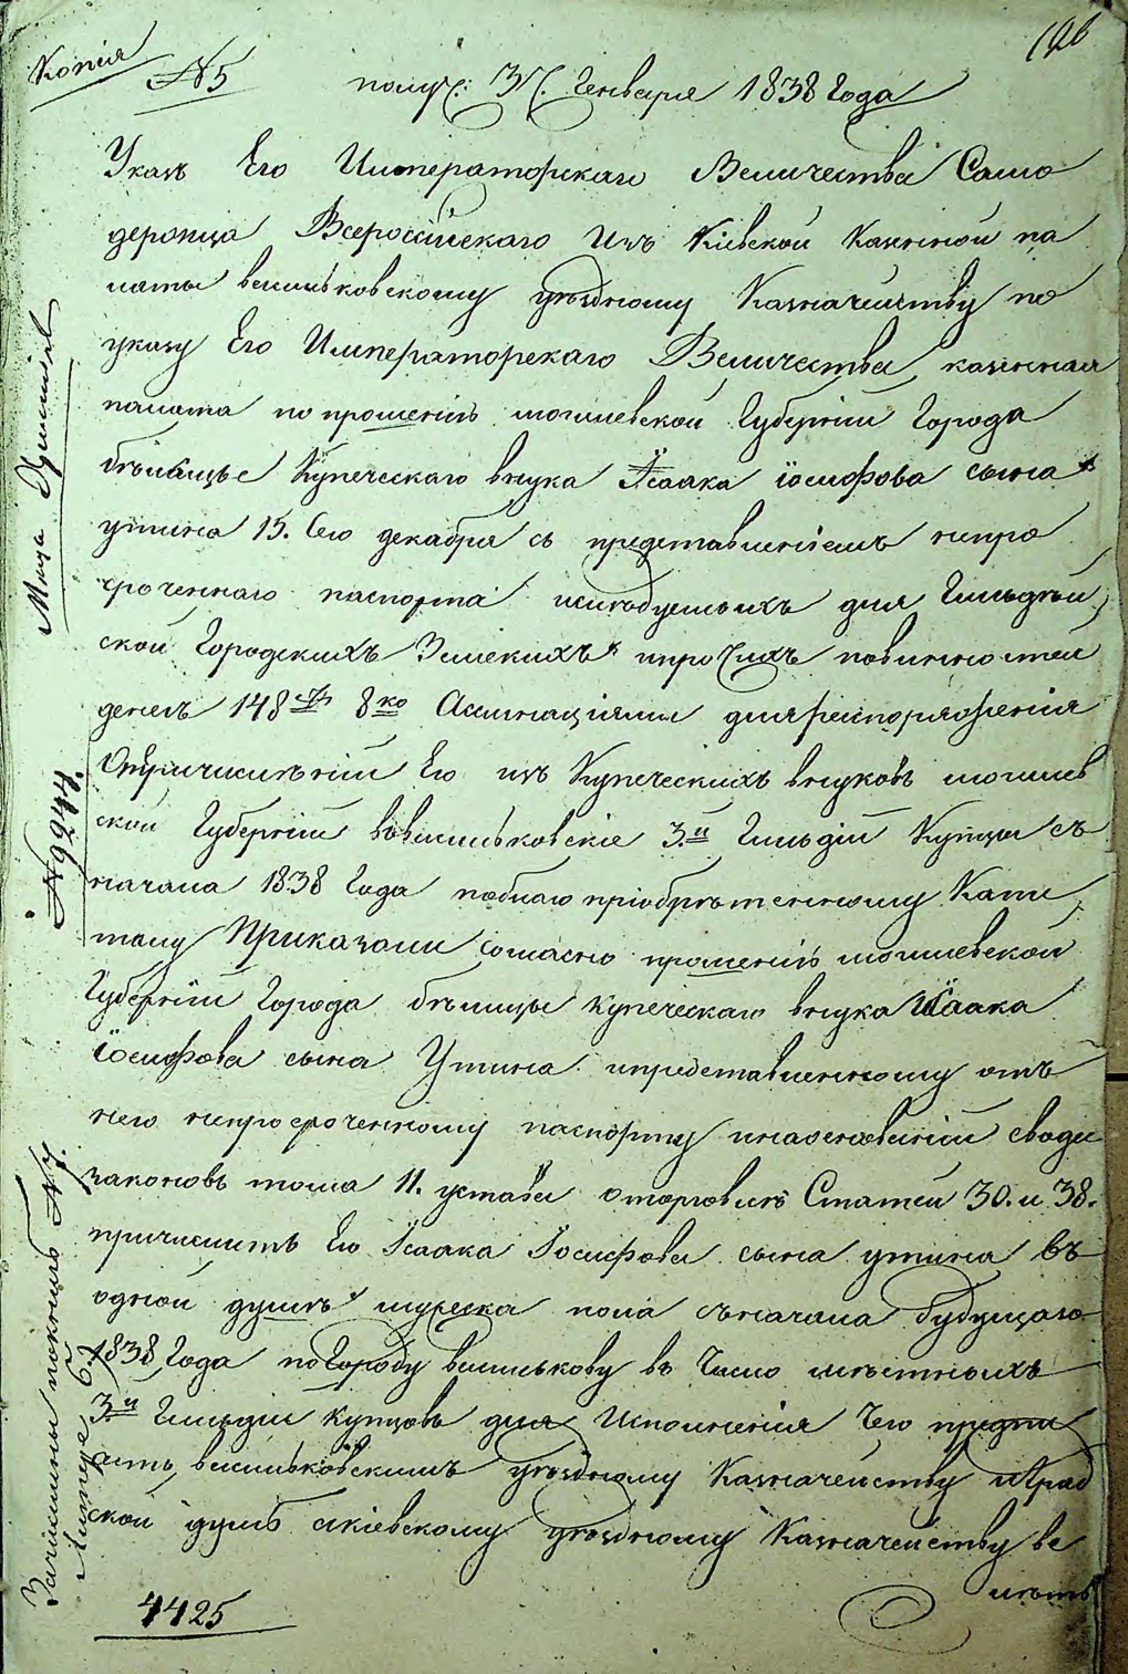 Копія
№ 5
126
получ: 31. Генваря 1838 Года
Указъ Его Императорскаго Величества Само
держца Всероссійскаго Изъ Кіевской Казенной па
латы васильковскому уѣздному Казначейству по
указу Его Императорскаго Величества казенная
палата по прошенію могилевской Губерніи Города
бѣлицы Купеческаго внука Ісаака іосифова сына
утина 15. Сего декабря съ представленіемъ непро
сроченнаго паспорта изслѣдуемыхъ для Гильдей
ской Городскихъ Земскихъ и прочихъ повинностей
денегъ 148 8ко Ассигнаціями для распоряженія
О причисленіи Его изъ Купеческихъ внуковъ могилев
ской Губерніи в васильковскіе 3.й Гильдіи Купцы съ
начала 1838 Года по благопріобрѣтенному Капи
талу Приказали согласно прошенію могилевской
Губерніи Города бѣлицы купеческаго внука Исаака
Іосифова сына Утина и представленному отъ
него непросроченному паспорту и на основаніи свода
законовъ тома 11. устава о торговлѣ Статей 30. и 38.
причислить Его Ісаака Іосифова сына утина въ
одной душѣ мужеска пола съ начала будущаго
1838 Года по Городу василькову въ Число мѣстныхъ
3.й Гильдіи купцовъ для Исполненія Чего предпи
сать васильковскимъ уѣздному Казначейству и Град
ской думѣ а кіевскому уѣздному Казначейству ве
лѣть
№ 9244.
4425